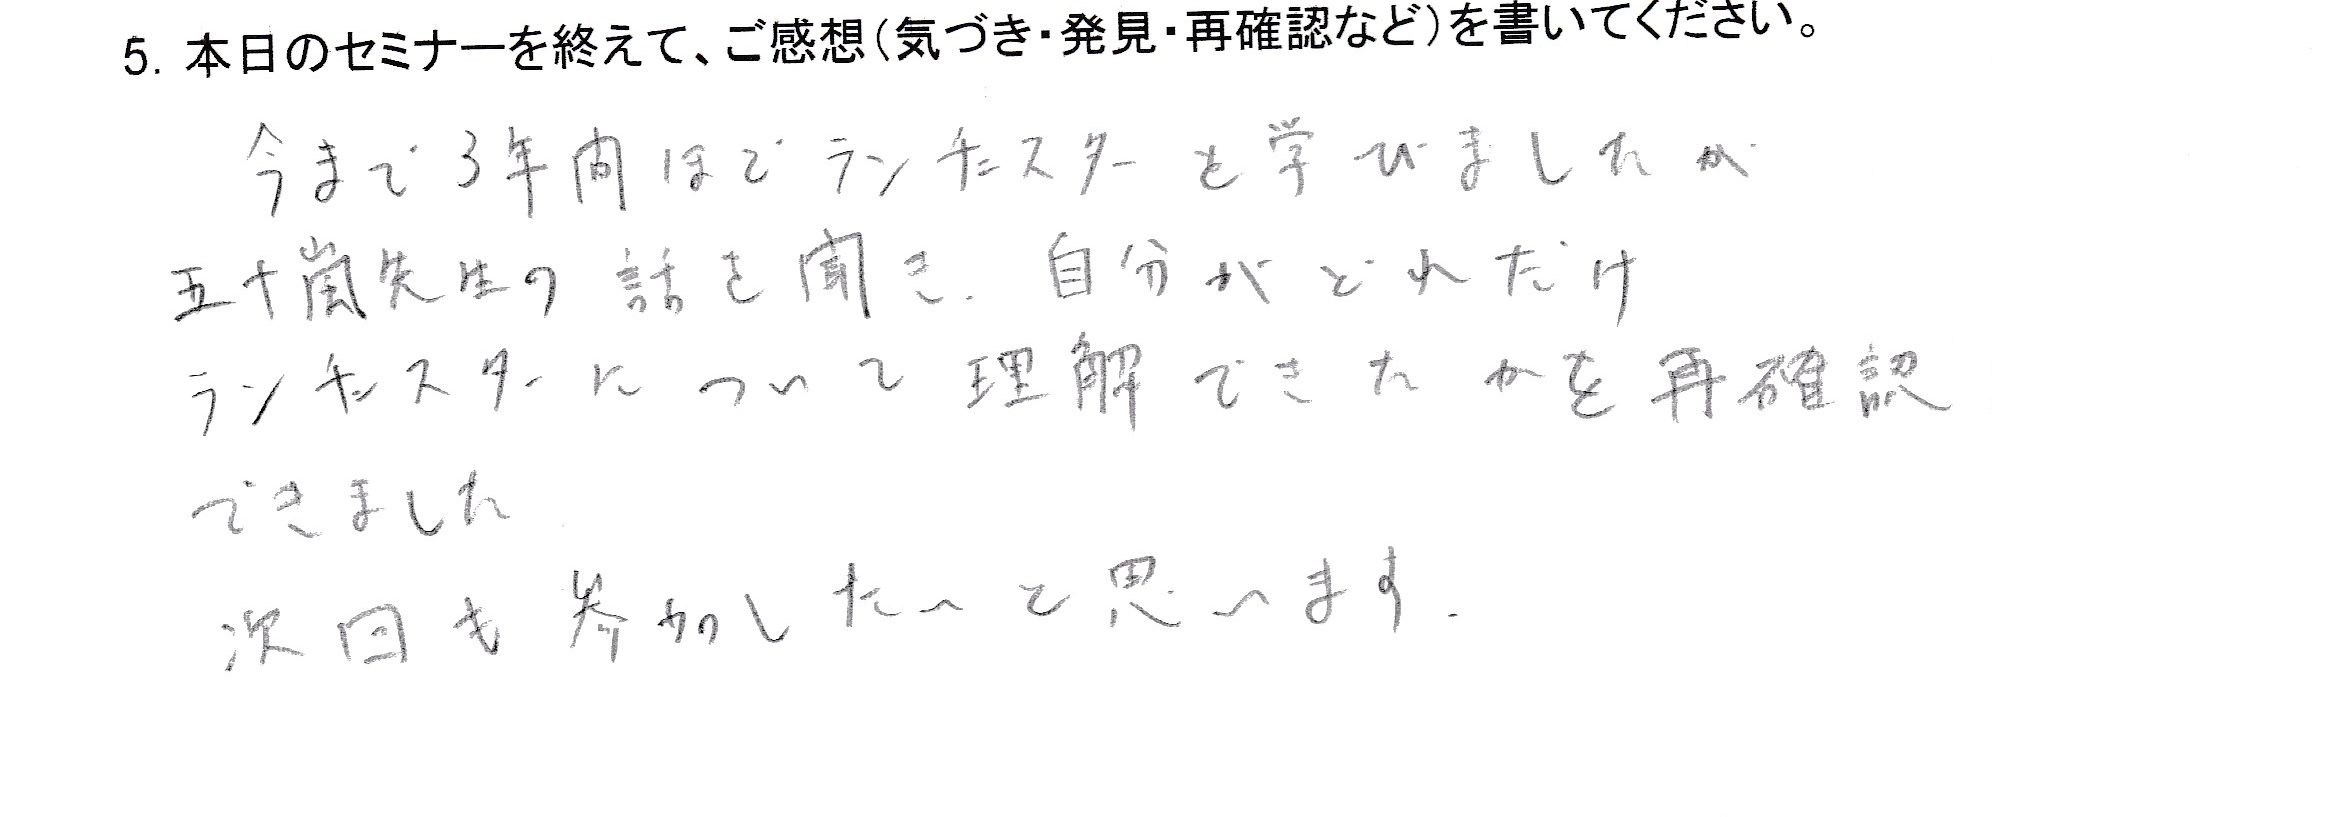 5. 本日のセミナーを終えて、ご感想(気づき・発見・再確認など)を書いてください。
今まで3年間ほどランチェスターを学びましたが
五十嵐先生の話を聞き、自分がどれだけ
ランチェスターについて理解できたかを再確認
できました
次回も参加したいと思います.